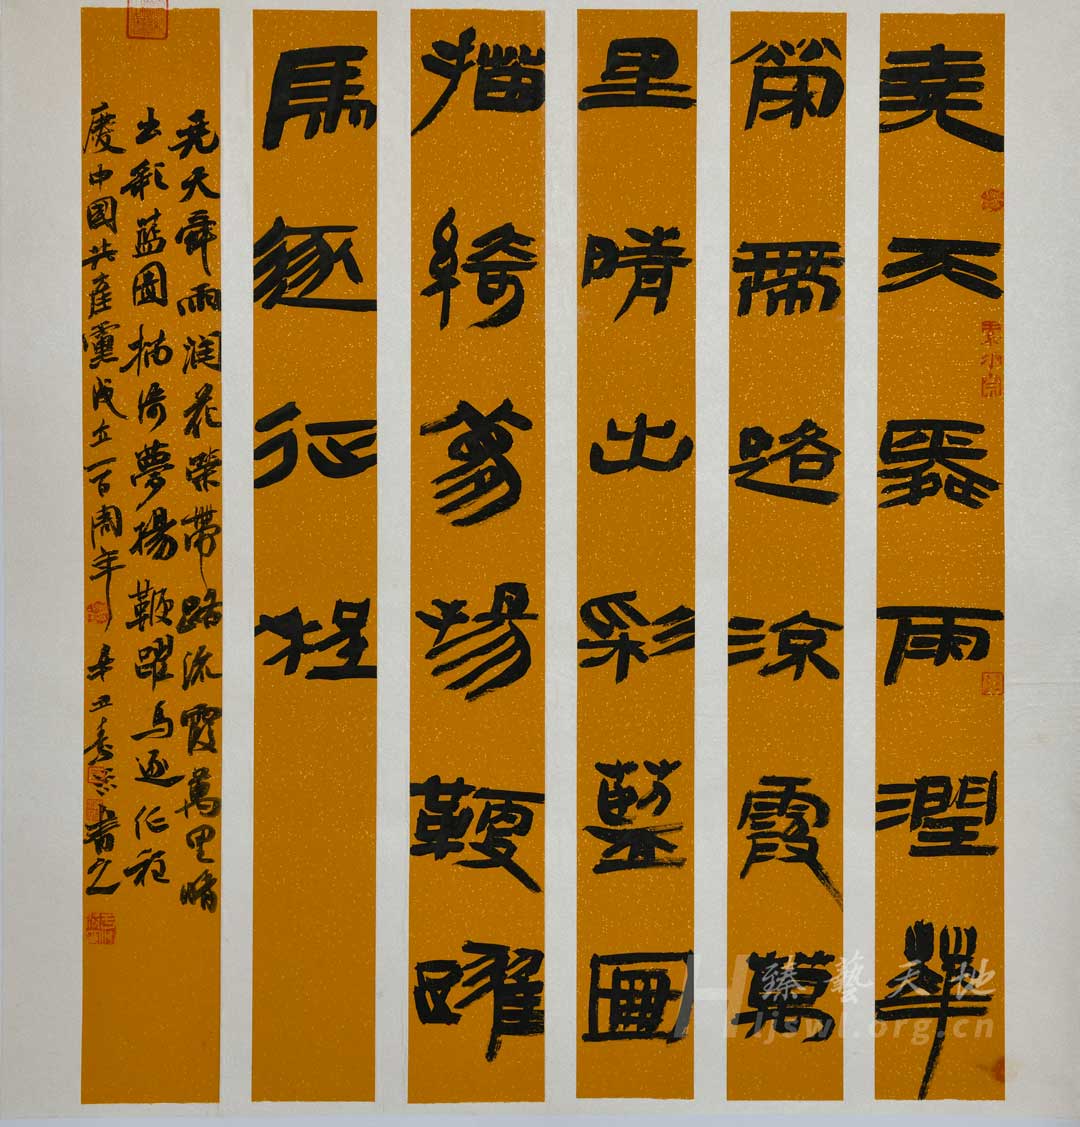 堯天舜雨潤華
榮帶路流霞萬
里晴出彩藍圖
描綺夢揚鞭躍
馬逐征程
堯天舜雨润花榮帶路流霞萬里晴
出彩藍圖描绮夢揚鞭躍馬逐征程
慶中國共產黨成立一百周年 辛丑春書之
臻藝天地
Hljswl.org.cn